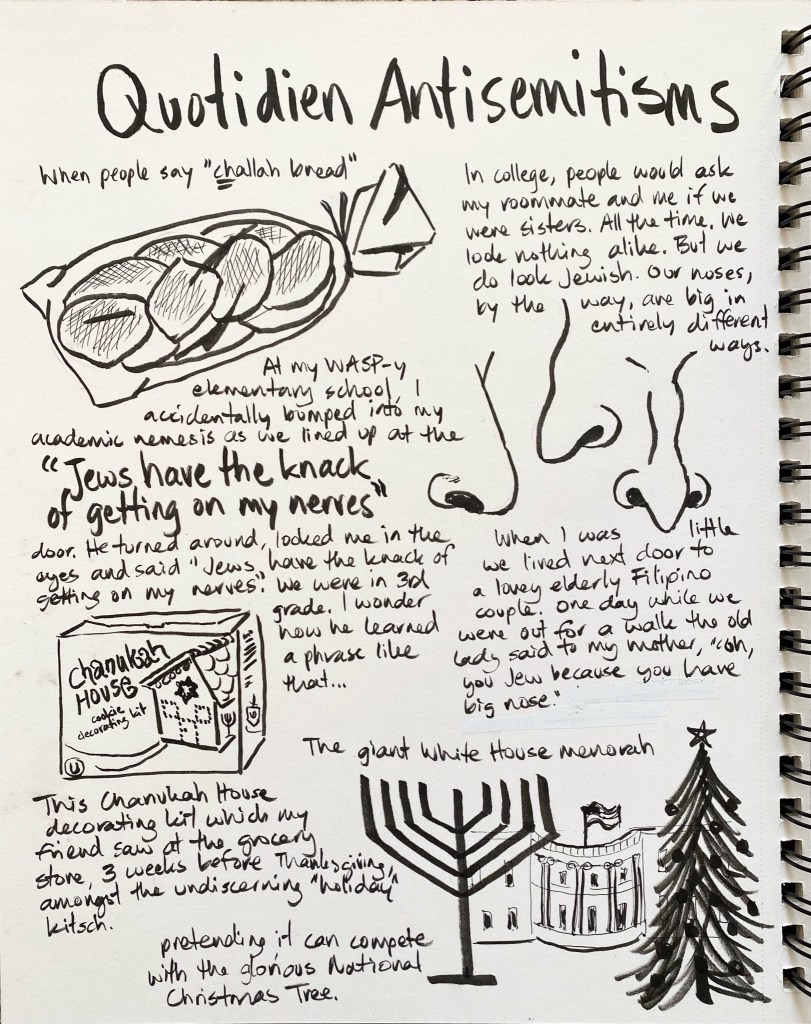 Quotidien Antisemitisms
When people say "challah bread"
In college, people would ask
my roommate and me if we
were sisters. All the time. We
look nothing alike. But we
do look Jewish. Our noses,
by the way, are big in
entirely different
ways.
At my WASP-y
elementary school, I
accidentally bumped into my
academic nemesis as we lined up at the
"Jews have the knack
of getting on my nerves"
door. He turned around, looked me in the
eyes and said "Jews have the knack of
getting on my nerves." We were in 3rd
grade. I wonder
how he learned
a phrase like
that...
When I was little
we lived next door to
a lovey elderly Filipino
couple. One day while we
were out for a walk the old
lady said to my mother, "ooh,
you Jew because you have
big nose."
Chanukah
House
cookie
decorating kit
U
This Chanukah House
decorating kit which my
friend saw at the grocery
store, 3 weeks before Thanksgiving,
amongst the undiscerning "holiday"
kitsch.
The giant White House menorah
pretending it can compete
with the glorious National
Christmas Tree.